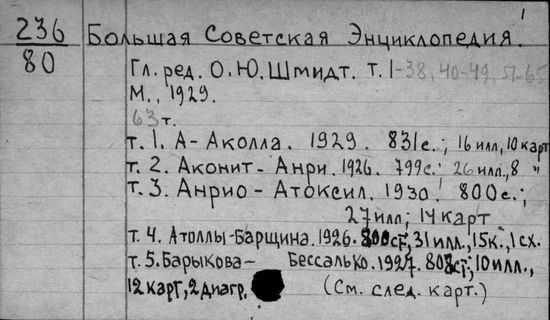 1
236
80
Большая Советская Энциклопедия.
Гл. ред. О. Ю. Шмидт. т. 1-38, 40-49, 51-65
М., 1929.
63 т.
т. 1. А - Аколла. 1929. 831 с.; 16 илл, 10 карт
т. 2. Аконит - Анри. 1926. 799 с. 26 илл., 8 "
т. 3. Анрио - Атоксил. 1930. 800 с.;
27 илл; 14 карт
т. 4. Атоллы - Барщина. 1926. 800 ст, 31 илл., 15 к., 1 сх.
т. 5. Барыкова - Бессалько. 1927. ст; 10 илл.,
12 карт, 2 диагр, (См. след. карт.)